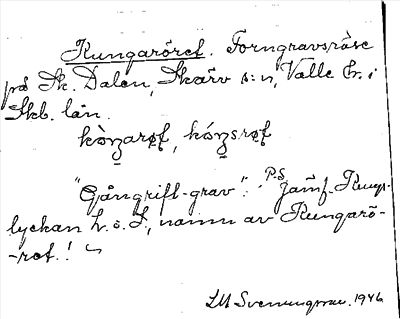 Kungaröret. Forngravsröse
på St. Dalen, Skärv s:n, Valle hr. i
Skb. län.
kòŋarøt, kóŋsrøt
"Gångrift-grav". P.S. Jämf. Kungs-
lyckan L. o. S., namn av Kungarö-
-ret.!
LM Svenungsson. 1946